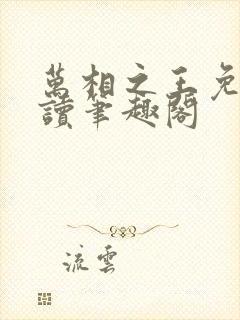 萬相之王免
讀筆趣閣
流雲